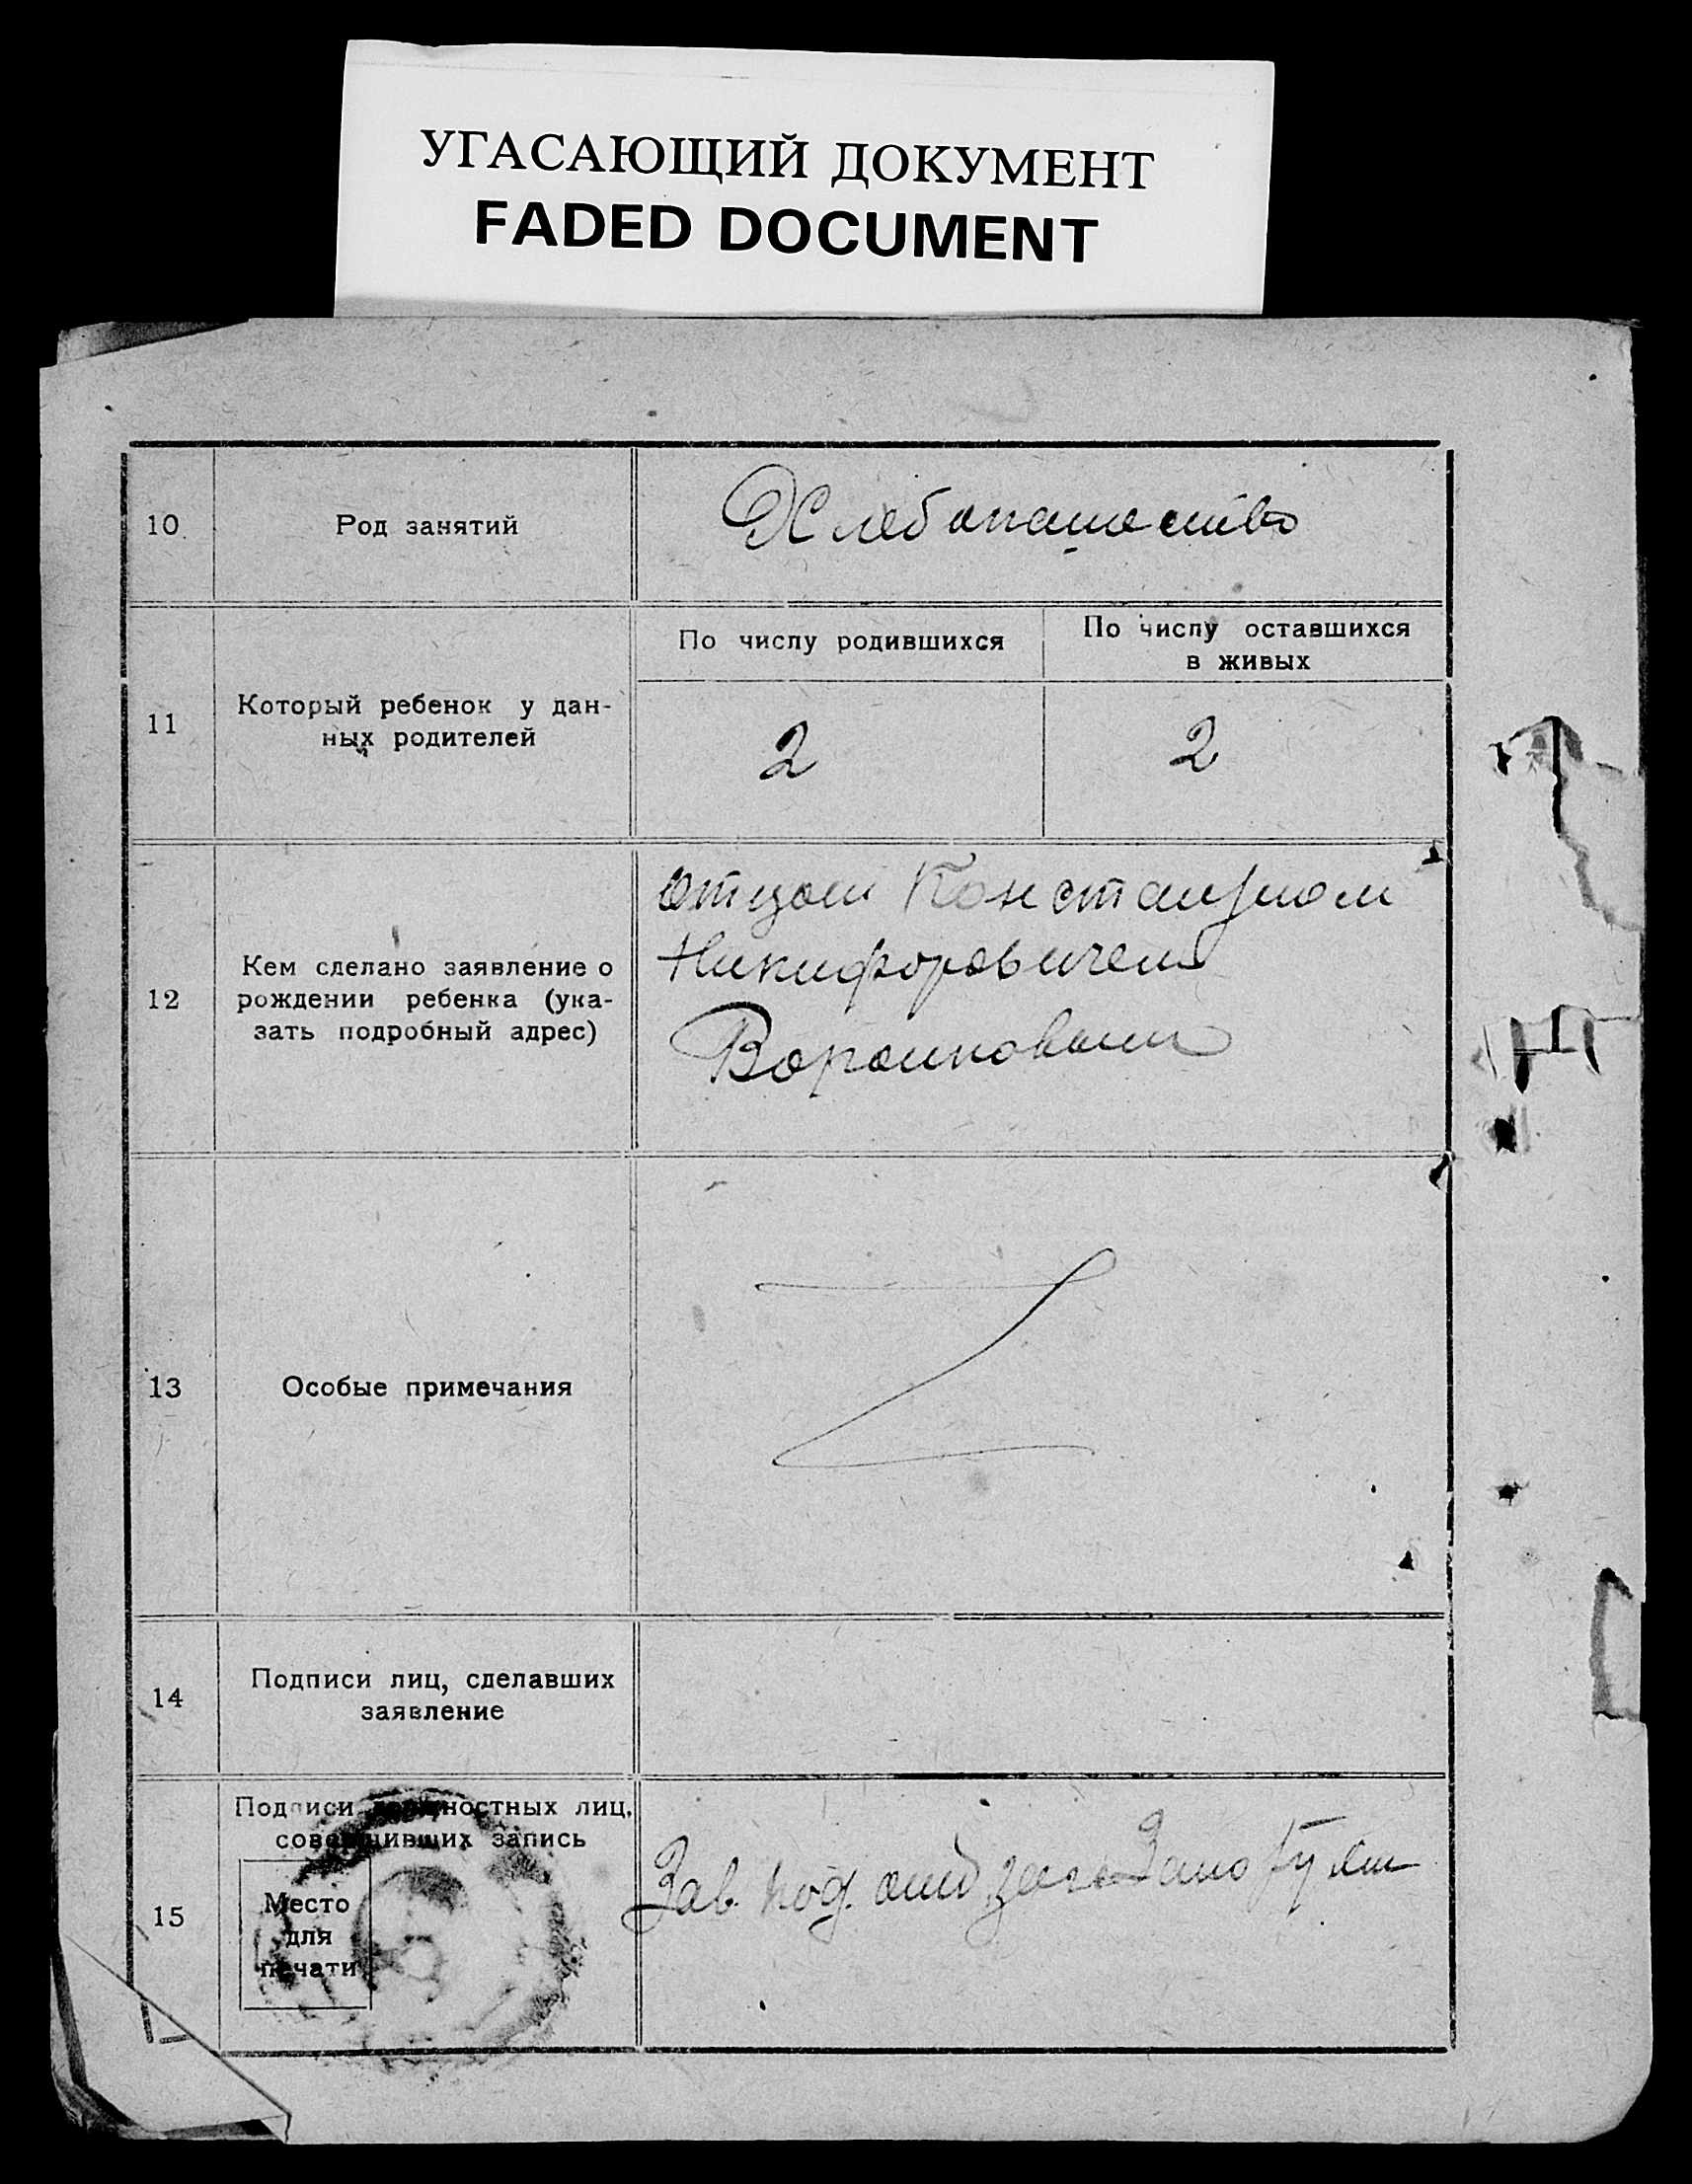 УГАСАЮЩИЙ ДОКУМЕНТ
FADED DOCUMENT
10
Род занятий
Хлебопашество
11
Который ребенок у дан-
ных родителей
По числу родившихся
По числу оставшихся
в живых
2
2
12
Кем сделано заявление о
рождении ребенка (ука-
зать подробный адрес)
Отцом Константином
Никифоровичем
13
Особые примечания
14
Подписи лиц, сделавших
заявление
15
Подписи должностных лиц,
совершивших запись
Место
для
печати
Зав. под.